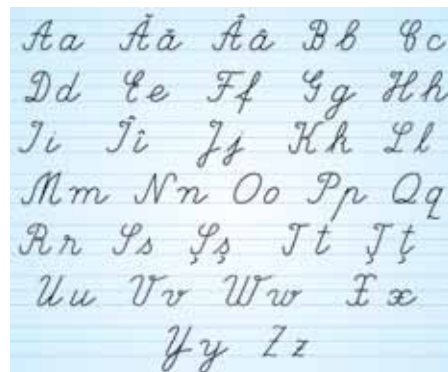 A a Ă ă Â â B b C c
D d E e F f G g H h
I i Î î J j K k L l
M m N n O o P p Q q
R r S s Ș ș T t Ț ț
U u V v W w X x
Y y Z z